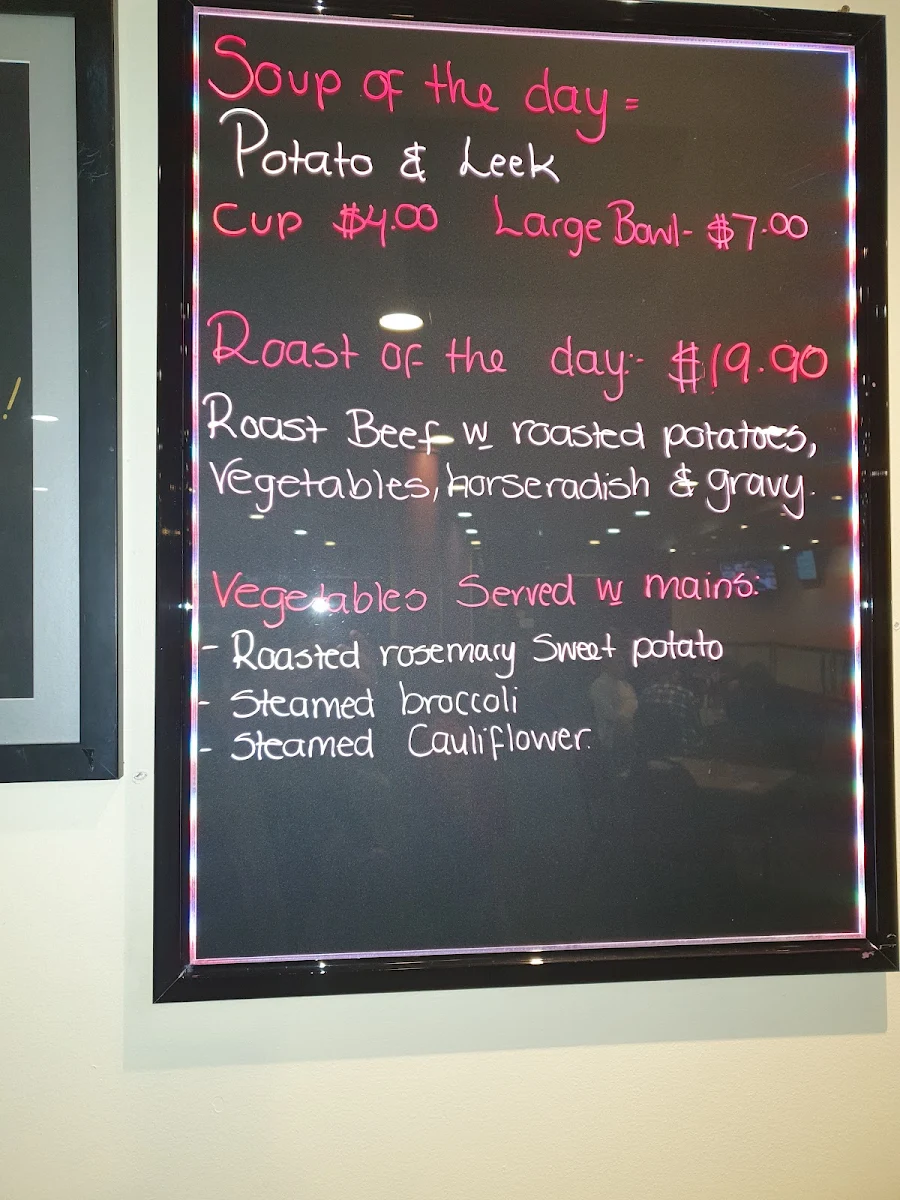 Soup of the day =
Potato & Leek
Cup $4.00 Large Bowl- $7.00
Roast of the day:- $19.90
Roast Beef w roasted potatoes,
Vegetables, horseradish & gravy.
Vegetables Served w mains:
- Roasted rosemary Sweet potato
- Steamed broccoli
- Steamed Cauliflower.
!